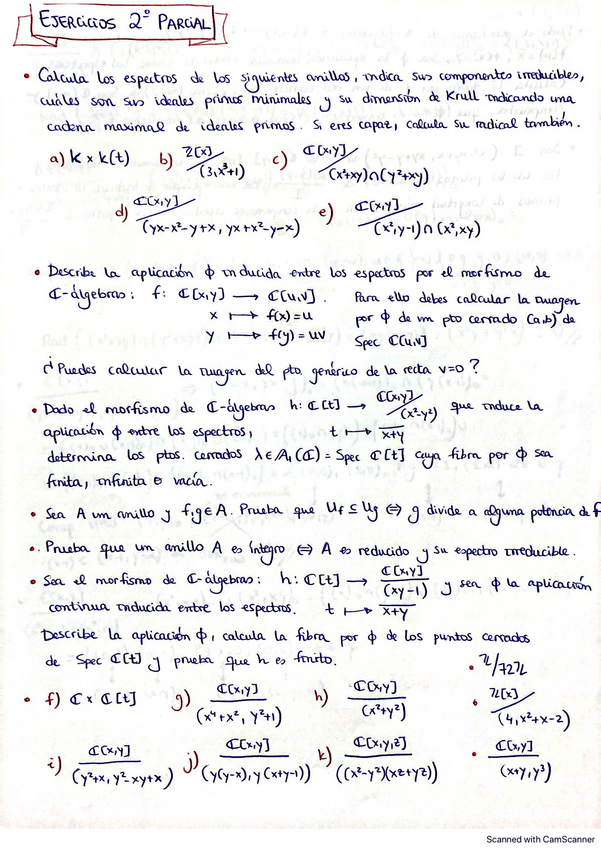 EJERCICIOS 2º PARCIAL
• Calcula los espectros de los siguientes anillos, indica sus componentes irreducibles,
cuáles son sus ideales primos minimales y su dimensión de Krull indicando una
cadena maximal de ideales primos. Si eres capaz, calcula su radical también.
a) k x k(t) b) Z[x]/(3, x³+1) c) ℂ[x,y]/(x²+xy)∩(y²+xy)
d) ℂ[x,y]/(yx-x²-y+x, yx+x²-y-x) e) ℂ[x,y]/(x², y-1)∩(x², xy)
• Describe la aplicación ϕ inducida entre los espectros por el morfismo de
ℂ-álgebras: f: ℂ[x,y] → ℂ[u,v]. Para ello debes calcular la imagen
x ↦ f(x)=u por ϕ de un pto cerrado (a,b) de
y ↦ f(y)=uv Spec ℂ[u,v]
¿Puedes calcular la imagen del pto. genérico de la recta v=0?
• Dado el morfismo de ℂ-álgebras h: ℂ[t] → ℂ[x,y]/(x²-y²) que induce la
aplicación ϕ entre los espectros, t ↦ x+y
determina los ptos. cerrados λ∈𝔸₁(ℂ) = Spec ℂ[t] cuya fibra por ϕ sea
finita, infinita o vacía.
• Sea A un anillo y f,g∈A. Prueba que Uf ⊆ Ug ⇔ g divide a alguna potencia de f
• Prueba que un anillo A es íntegro ⇔ A es reducido y su espectro irreducible.
• Sea el morfismo de ℂ-álgebras: h: ℂ[t] → ℂ[x,y]/(xy-1) y sea ϕ la aplicación
continua inducida entre los espectros. t ↦ x+y
Describe la aplicación ϕ, calcula la fibra por ϕ de los puntos cerrados
de Spec ℂ[t] y prueba que h es finito.
• ℤ/72ℤ
• f) ℂ x ℂ[t] g) ℂ[x,y]/(x⁴+x², y²+1) h) ℂ[x,y]/(x²+y²) • ℤ[x]/(4, x²+x-2)
i) ℂ[x,y]/(y²+x, y²-xy+x) j) ℂ[x,y]/(y(y-x), y(x+y-1)) k) ℂ[x,y,z]/((x²-y²)(xz+yz)) • ℂ[x,y]/(x+y, y³)
Scanned with CamScanner